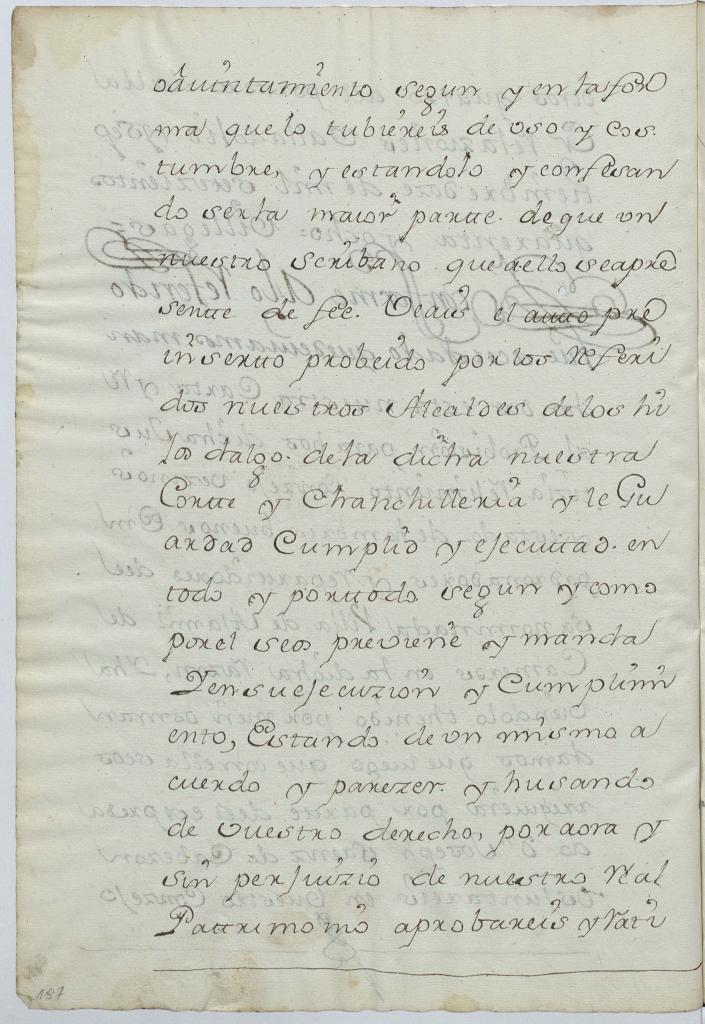 o aiuintamiento segun y en la for
ma que lo tubiereis de uso y cos
tumbre, y estandolo y confesan
do ser la maior partte de que un
nuestro scribano que a ello sea pre
sentte de fee. Veais el autto pre
insertto probeido por los Referi
dos nuestros Alcaldes de los hi
jos dalgo de la dichra nuestra
Cortte y Chanchilleria y le Gu
ardad Cumplid y ejecuttad en
todo y por ttodo segun y como
por el se os previene y manda
Y en su ejecuzion y Cumplimi
ento, Estando de un mismo a
cuerdo y parezer y husando
de vuestro derecho, por aora y
sin perjuizio de nuestro Real
Pattrimonio aprobareis y Rati
187